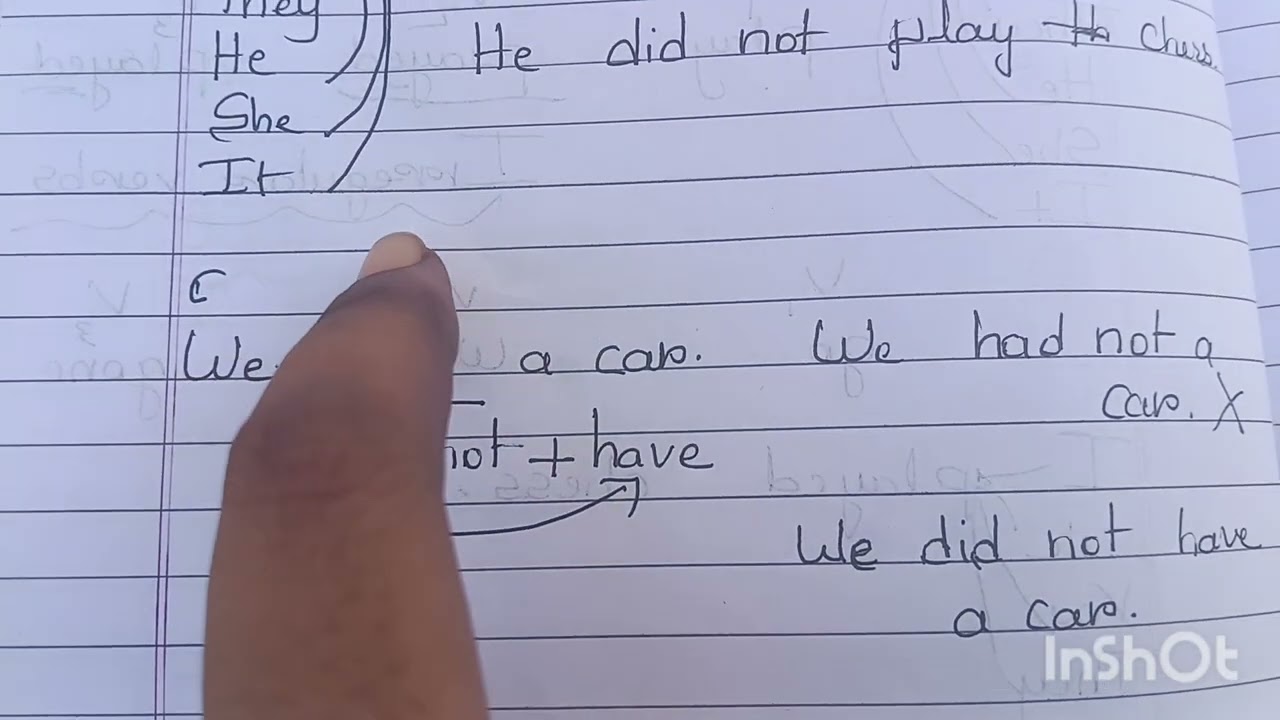 They
He He did not play th chess.
She
It
C
We a car. We had not a
car. X
not + have
We did not have
a car.
InShOt